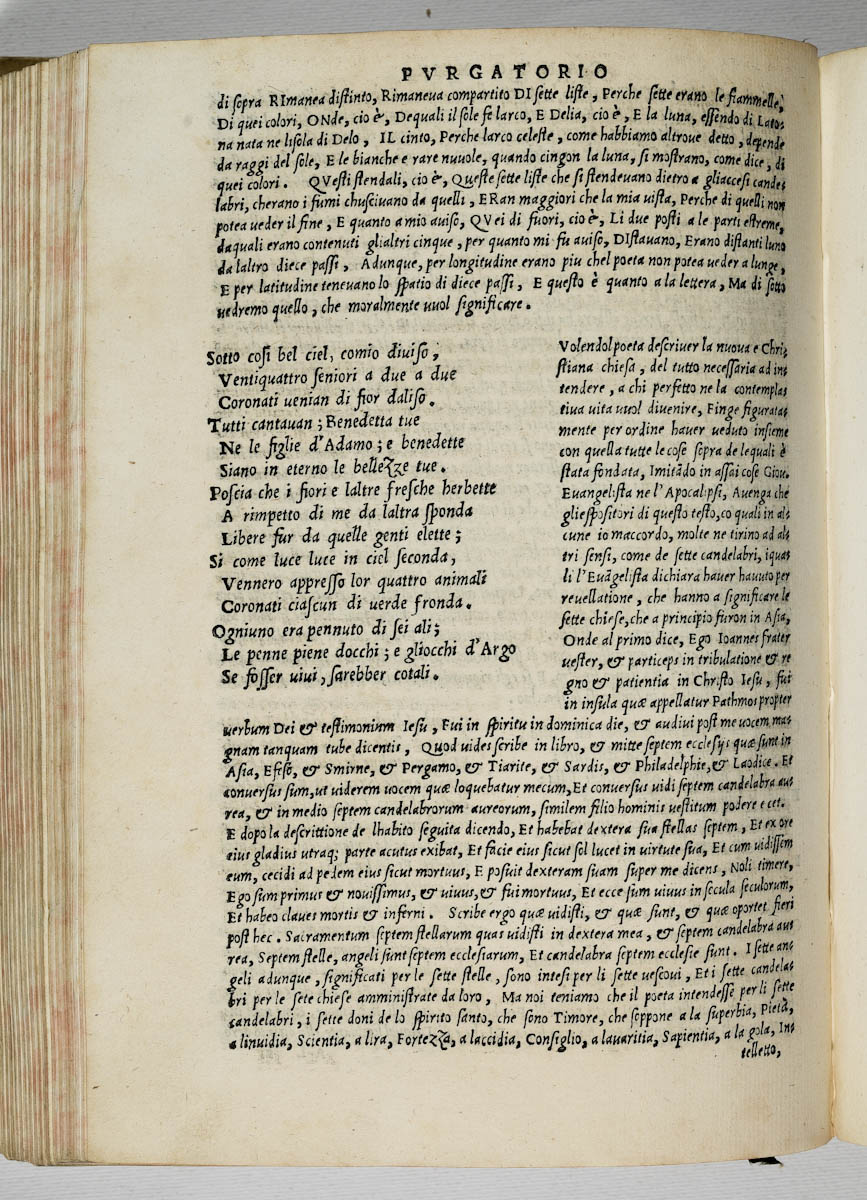 PVRGATORIO
di sopra RImanea distinto, Rimaneua compartito DI sette liste, Perche sette erano le fiammelle,
Di quei colori, ONde, cio è, Dequali il sole fe larco, E Delia, cio è, E la luna, essendo di Lato-
na nata ne lisola di Delo, IL cinto, Perche larco celeste, come habbiamo altroue detto, depende
da raggi del sole, E le bianche e rare nuuole, quando cingon la luna, si mostrano, come dice, di
quei colori. QVesti stendali, cio è, Queste sette liste che si stendeuano dietro a gliaccesi cande-
labri, cherano i fumi chusciuano da quelli, ERan maggiori che la mia uista, Perche di quelli non
potea ueder il fine, E quanto a mio auiso, QVei di fuori, cio è, Li due posti a le parti estreme,
daquali erano contenuti glialtri cinque, per quanto mi fu auiso, DIstauano, Erano distanti luno
da laltro diece passi, Adunque, per longitudine erano piu chel poeta non potea ueder a lunge,
E per latitudine teneuano lo spatio di diece passi, E questo è quanto a la lettera, Ma di sotto
uedremo quello, che moralmente uuol significare.
Sotto cosi bel ciel, comio diuiso,
Ventiquattro seniori a due a due
Coronati uenian di fior daliso.
Tutti cantauan; Benedetta tue
Ne le figlie d'Adamo; e benedette
Siano in eterno le bellezze tue.
Poscia che i fiori e laltre fresche herbette
A rimpetto di me da laltra sponda
Libere fur da quelle genti elette;
Si come luce luce in ciel seconda,
Vennero appresso lor quattro animali
Coronati ciascun di uerde fronda.
Ogniuno era pennuto di sei ali;
Le penne piene docchi; e gliocchi d'Argo
Se fosser uiui, sarebber cotali.
Volendol poeta descriuer la nuoua e Chri-
stiana chiesa, del tutto necessaria ad in-
tendere, a chi perfetto ne la contempla-
tiua uita uuol diuenire, Finge figurata-
mente per ordine hauer ueduto insieme
con quella tutte le cose sopra de lequali è
stata fondata, Imitãdo in assai cose Giou.
Euangelista ne l'Apocalipsi, Auenga che
gliespositori di questo testo, co quali in al-
cune io maccordo, molte ne tirino ad al-
tri sensi, come de sette candelabri, iqua-
li l'Euãgelista dichiara hauer hauuto per
reuellatione, che hanno a significare le
sette chiese, che a principio furon in Asia,
Onde al primo dice, Ego Ioannes frater
uester, & particeps in tribulatione & re
gno & patientia in Christo Iesu, fui
in insula quæ appellatur Pathmos propter
uerbum Dei & testimonium Iesu, Fui in spiritu in dominica die, & audiui post me uocem ma-
gnam tanquam tube dicentis, Quod uides scribe in libro, & mitte septem ecclesijs quæ sunt in
Asia, Efeso, & Smirne, & Pergamo, & Tiarite, & Sardis, & Philadelphie, & Laodice. Et
conuersus sum, ut uiderem uocem quæ loquebatur mecum, Et conuersus uidi septem candelabra au-
rea, & in medio septem candelabrorum aureorum, similem filio hominis uestitum podere e cet.
E dopo la descrittione de lhabito seguita dicendo, Et habebat dextera sua stellas septem, Et ex ore
eius gladius utraq; parte acutus exibat, Et facie eius sicut sol lucet in uirtute sua, Et cum uidissem
eum, cecidi ad pedem eius sicut mortuus, E posuit dexteram suam super me dicens, Noli timere,
Ego sum primus & nouissimus, & uiuus, & fui mortuus, Et ecce sum uiuus in secula seculorum,
Et habeo claues mortis & inferni. Scribe ergo quæ uidisti, & quæ sunt, & quæ oportet fieri
post hec. Sacramentum septem stellarum quas uidisti in dextera mea, & septem candelabra au-
rea, Septem stelle, angeli sunt septem ecclesiarum, Et candelabra septem ecclesie sunt. I sette an-
geli adunque, significati per le sette stelle, sono intesi per li sette uescoui, Et i sette candela-
bri per le sete chiese amministrate da loro, Ma noi teniamo che il poeta intendesse per li sette
candelabri, i sette doni de lo spirito santo, che sono Timore, che soppone a la superbia, Pietà,
a linuidia, Scientia, a lira, Fortezza, a laccidia, Consiglio, a lauaritia, Sapientia, a la gola, In-
telletto,